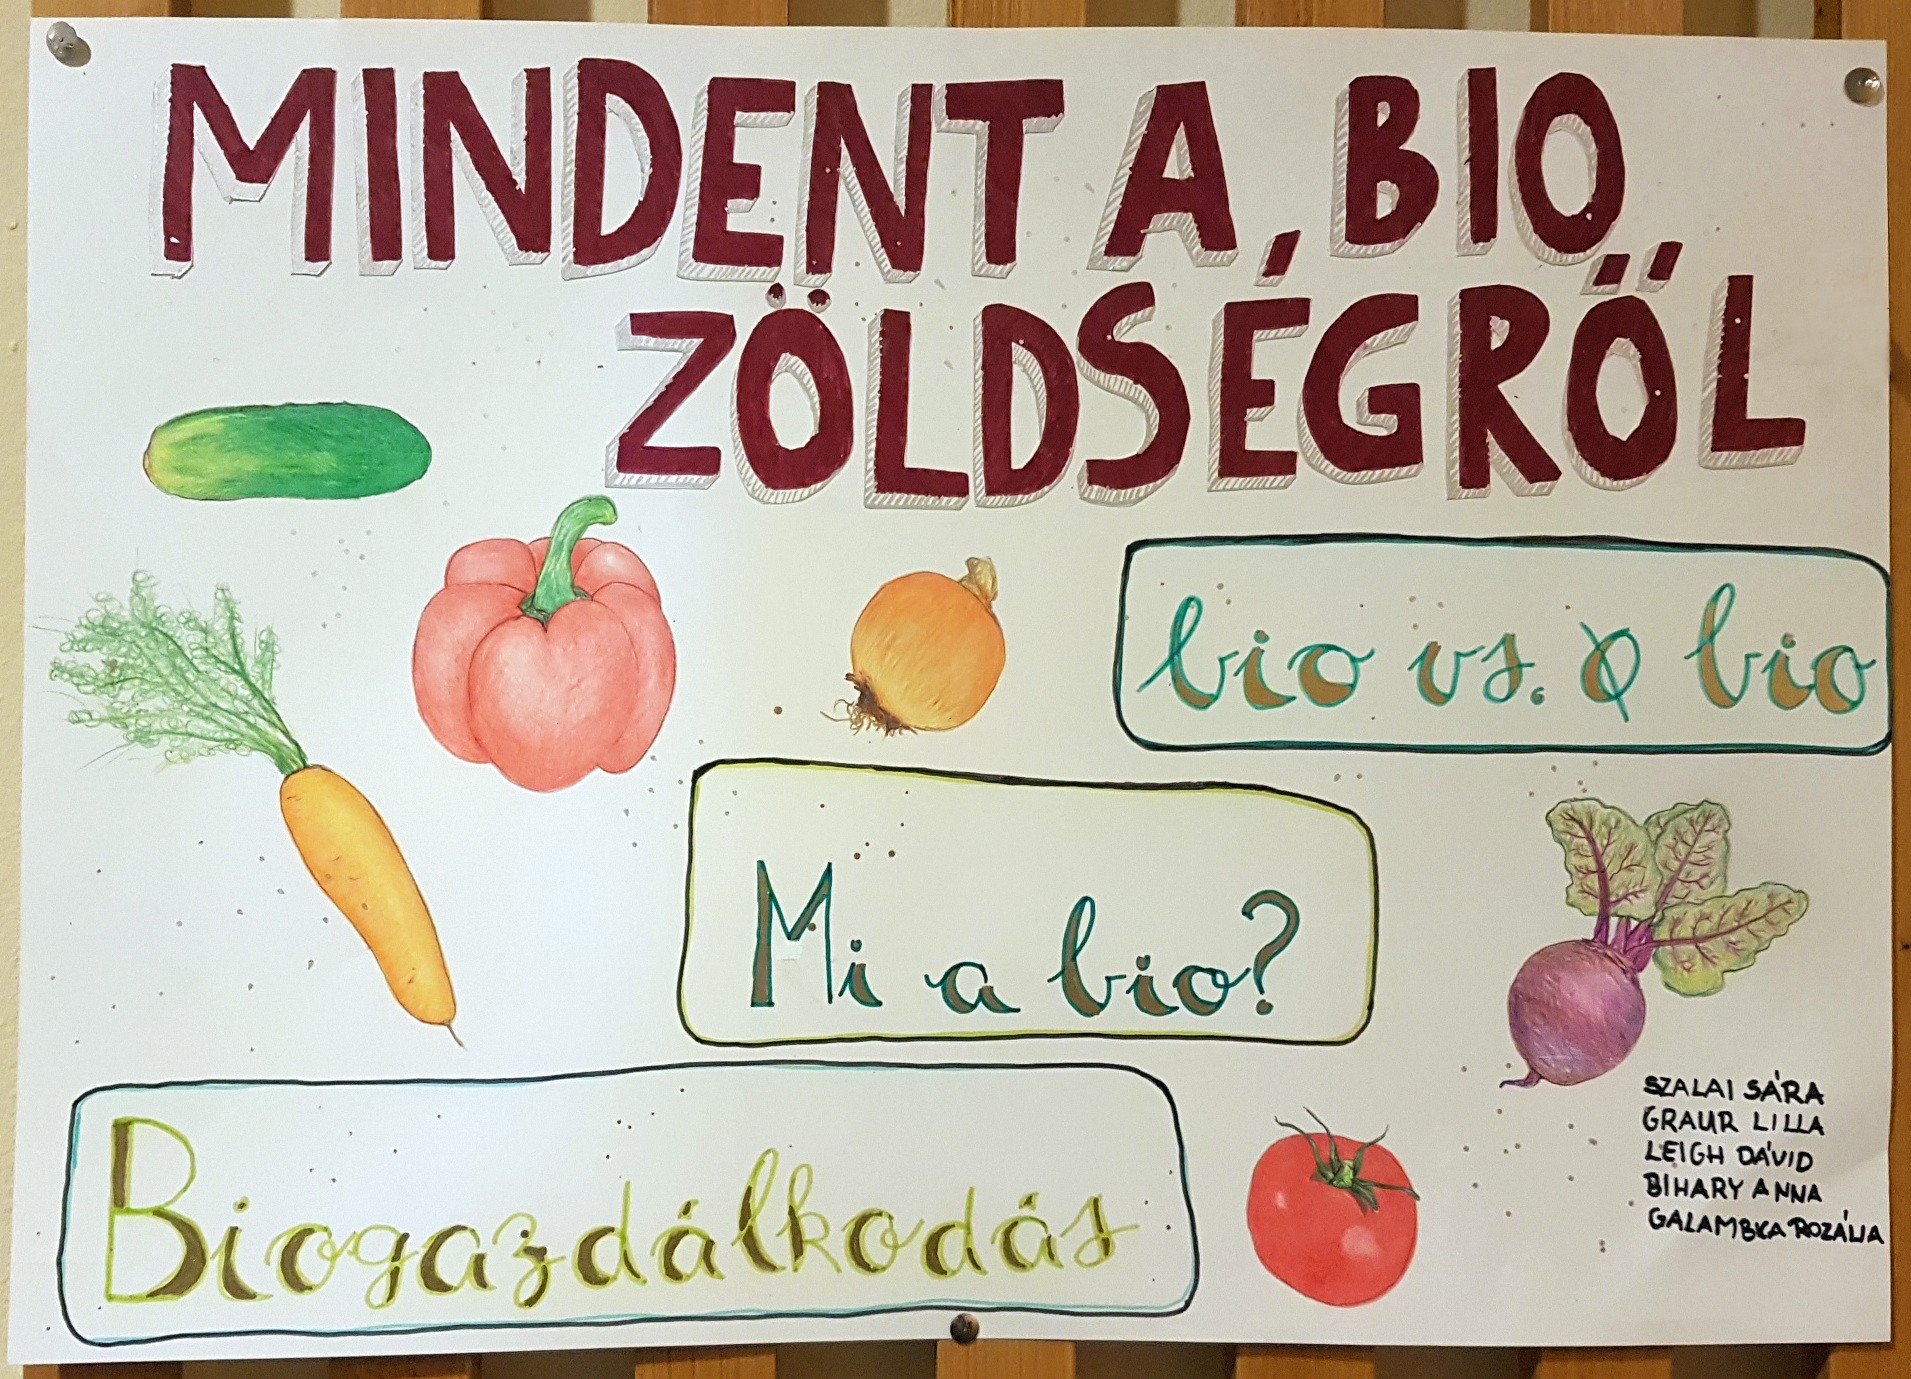 MINDENT A BIO
ZÖLDSÉGRŐL
bio vs. Ø bio
Mi a bio?
Biogazdálkodás
SZALAI SÁRA
GRAUR LILLA
LEIGH DÁVID
BIHARY ANNA
GALAMBKA ROZÁLIA